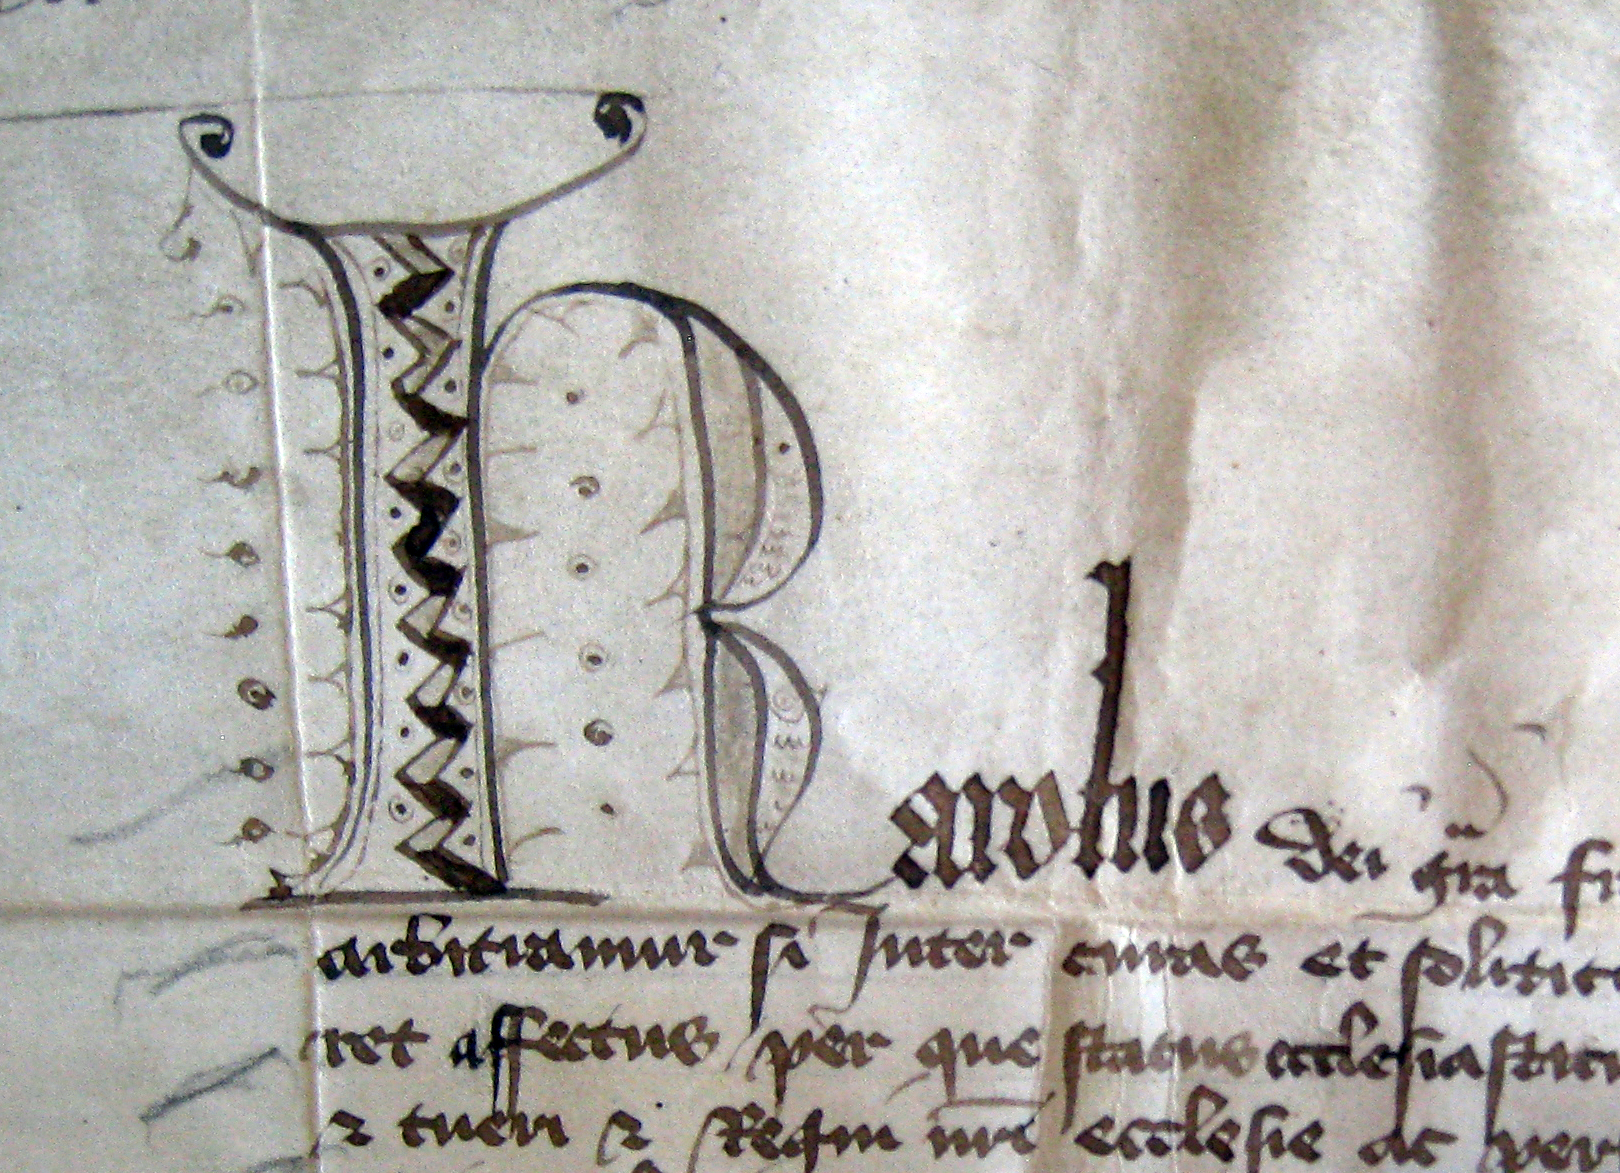 Karolus dei gra fr
arbitramur si Inter curas et solicit
ret affectus per que status ecclesiastic
⁊ tueri ⁊ Regni nri ecclesie ac per